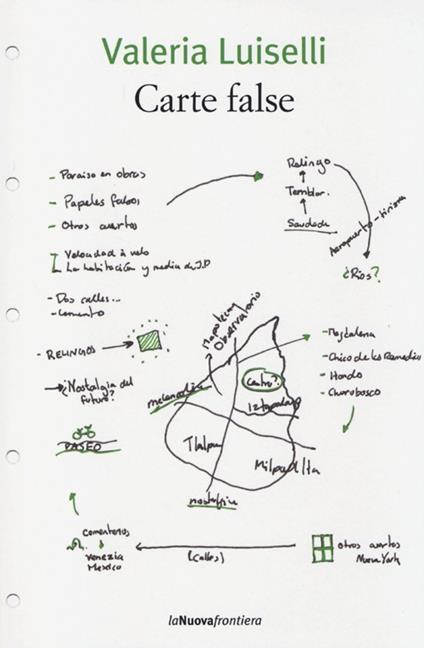 Valeria Luiselli
Carte false
- Paraiso en obras
- Papeles falsos
- Otros cuartos
Velocidad à velo
La habitación y media de J.P
- Dos calles...
- cemento
- RELINGOS
¿Nostalgia del
futuro?
PASEO
Relingo
Temblor.
Saudade
Aeropuerto-turismo
¿Rios?
Mapoteca
Observatorio
melancolia
centro?
Iztapalapa
Tlalpan
Milpa Alta
nostalgia
- Magdalena
- Chico de los Remedios
- Hondo
- Churubosco
cementerios
venezia
Mexico
(calles)
otros cuartos
Nueva York
laNuovafrontiera